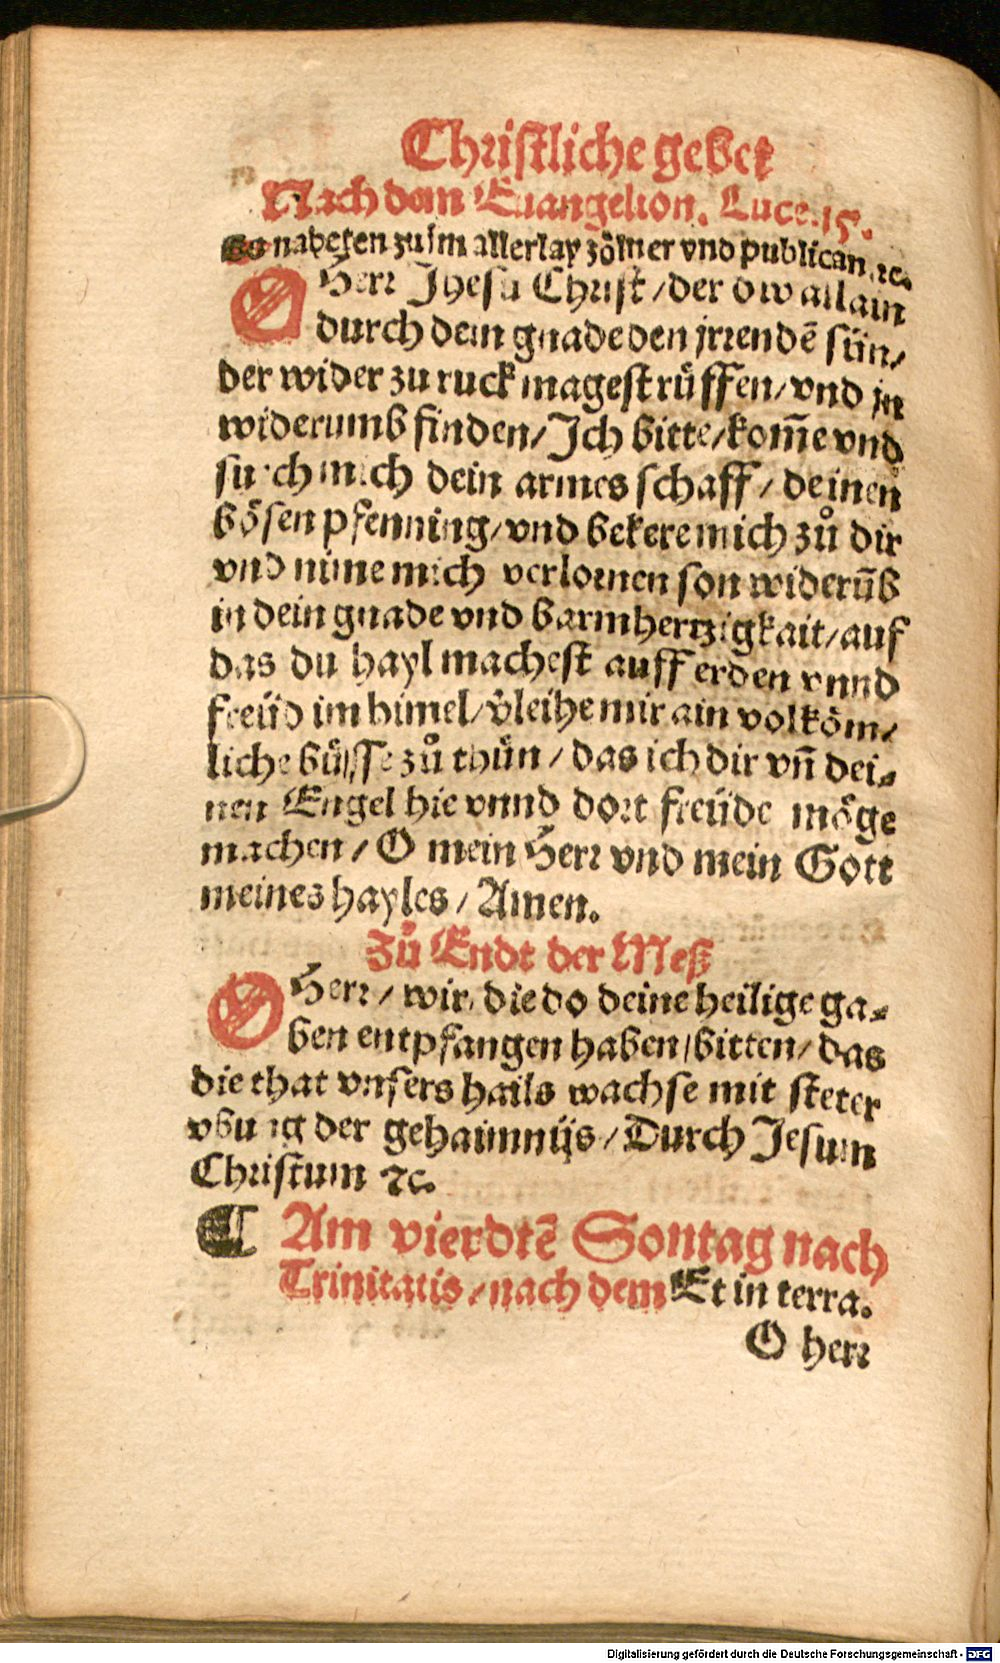 Christliche gebet
Nach dem Euangelion. Luce. 15.
Es naheten zu im allerlay zölner vnd publican ꝛc.
O Herr Jhesu Christ / der dw allain
durch dein gnade den jrrendē sün/
der wider zu ruck magest rüffen/ vnd jn
widerumb finden/ Jch bitte/ kom̄e vnd
such mich dein armes schaff / deinen
bösen pfenning/ vnd bekere mich zů dir
vnd nime mich verlornen son widerūb
in dein gnade vnd barmhertzigkait/ auf
das du hayl machest auff erden vnnd
freüd im himel/ v̄leihe mir ain volköm/
liche büsse zů thün / das ich dir vn̄ dei⸗
nen Engel hie vnnd dort freüde möge
machen / O mein Herr vnd mein Gott
meines hayles / Amen.
Zů Endt der Meß
O Herr / wir, die do deine heilige ga⸗
ben entpfangen haben / bitten / das
die that vnsers hails wachse mit steter
vbung der gehaimnijs / Durch Jesum
Christum ꝛc.
¶ Am vierdtē Sontag nach
Trinitatis / nach dem Et in terra.
O herr
Digitalisierung gefördert durch die Deutsche Forschungsgemeinschaft - DFG